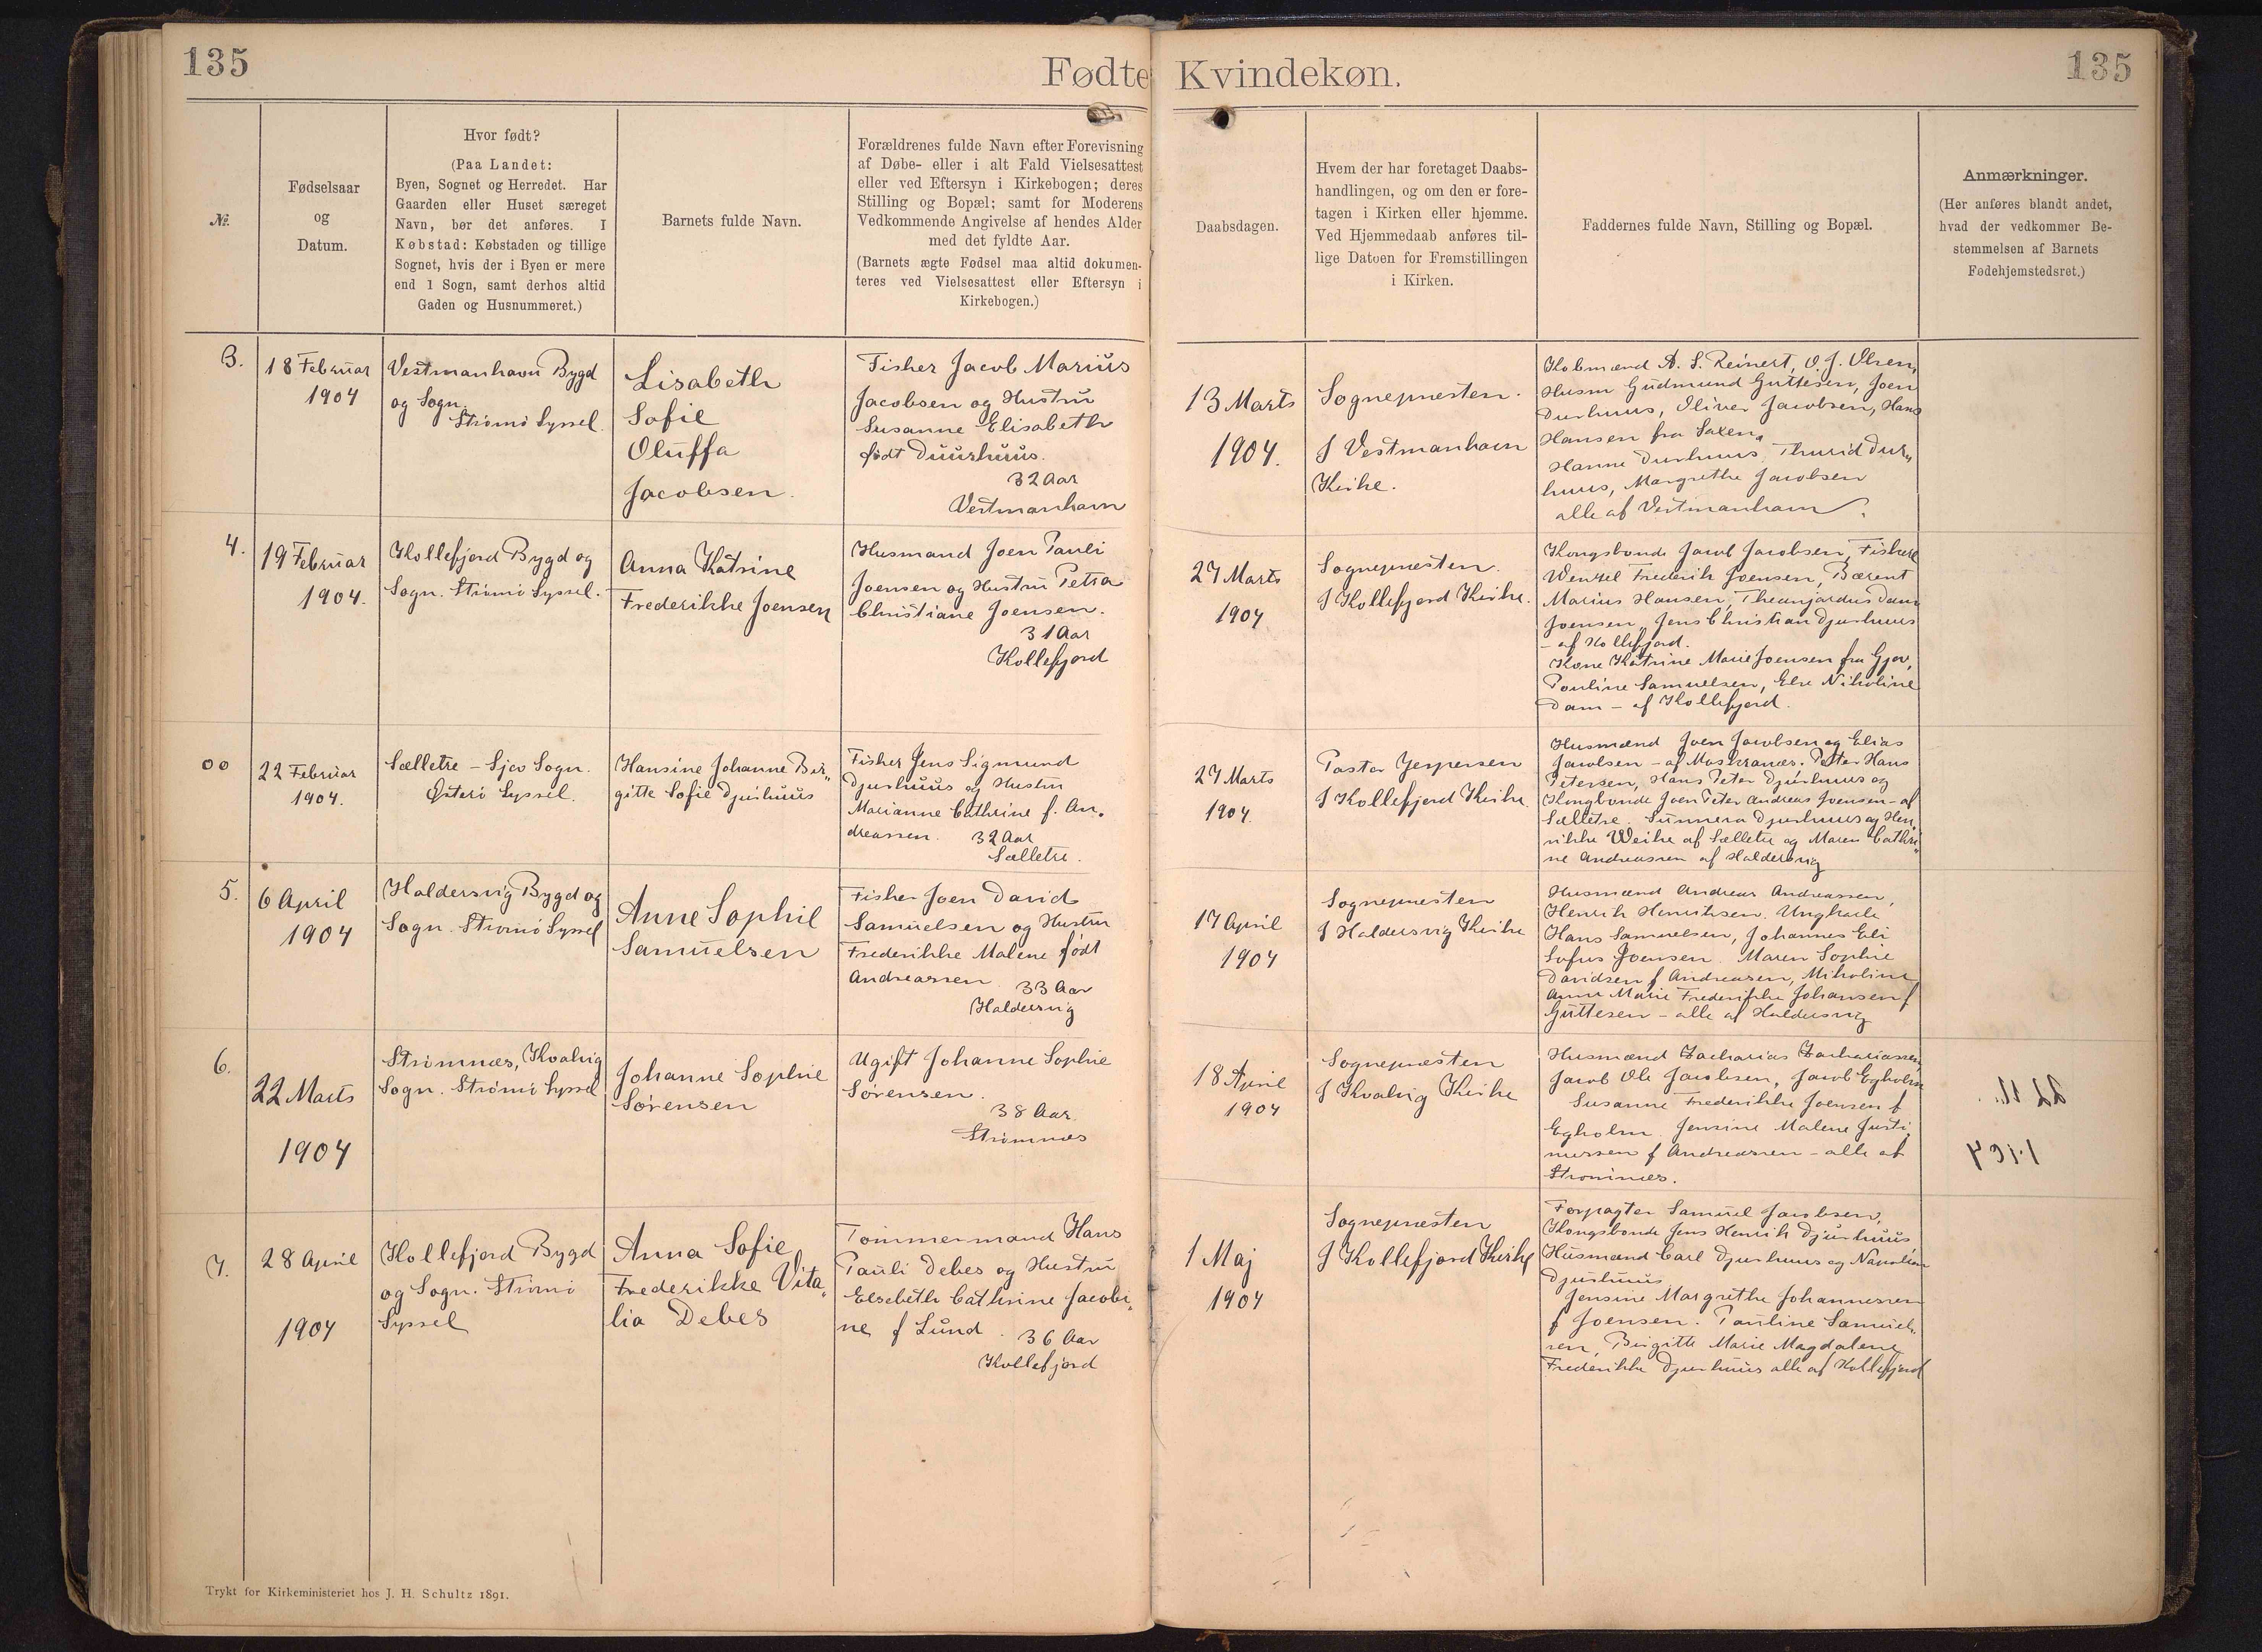 135
Fødte Kvindekøn.
135
№.
Fødselsaar
og
Datum.
Hvor født?
(Paa Landet:
Byen, Sognet og Herredet. Har
Gaarden eller Huset særeget
Navn, bør det anføres. I
Købstad: Købstaden og tillige
Sognet, hvis der i Byen er mere
end 1 Sogn, samt derhos altid
Gaden og Husnummeret.)
Barnets fulde Navn.
Forældrenes fulde Navn efter Forevisning
af Døbe- eller i alt Fald Vielsesattest
eller ved Eftersyn i Kirkebogen; deres
Stilling og Bopæl; samt for Moderens
Vedkommende Angivelse af hendes Alder
med det fyldte Aar.
(Barnets ægte Fødsel maa altid dokumen-
teres ved Vielsesattest eller Eftersyn i
Kirkebogen.)
Daabsdagen.
Hvem der har foretaget Daabs-
handlingen, og om den er fore-
tagen i Kirken eller hjemme.
Ved Hjemmedaab anføres til-
lige Datoen for Fremstillingen
i Kirken.
Faddernes fulde Navn, Stilling og Bopæl.
Anmærkninger.
(Her anføres blandt andet,
hvad der vedkommer Be-
stemmelsen af Barnets
Fødehjemstedsret.)
3.
18 Februar
1904
Vestmanhavn Bygd
og Sogn.
Strømø Syssel.
Lisabeth
Sofie
Oluffa
Jacobsen.
Fisker Jacob Marius
Jacobsen og Hustru
Susanne Elisabeth
født Duurhuus.
32 Aar
Vestmanhavn
13 Marts
1904.
Sognepræsten.
I Vestmanhavn
Kirke.
Kobmænd A. S. Reinert, O. J. Olsen,
Husm Gudmund Guttesen, Joen
Durhuus, Oliver Jacobsen, Hans
Hansen fra Saxen,
Hanne Durhuus, Thurid Dur„
huus, Margrethe Jacobsen
alle af Vestmanhavn.
4.
19 Februar
1904.
Kollefjord Bygd og
Sogn. Strømø Syssel.
Anna Katrine
Frederikke Joensen
Husmand Joen Pauli
Joensen og Hustru Petra
Christiane Joensen.
31 Aar
Kollefjord
27 Marts
1904
Sognepræsten.
I Kollefjord Kirke.
Kongsbonde Jacob Jacobsen, Fiskere
Wenzel Frederik Joensen, Bærent
Marius Hansen, Dam
Joensen, Jens Christian Djurhuus
- af Kollefjord.
Kone Katrine Marie Joensen fra Gjov,
Pouline Samuelsen, Else Nikoline
Dam - af Kollefjord.
00
22 Februar
1904.
Sælletre - Sjov Sogn.
Østerø Syssel.
Hansine Johanne Bir„
gitte Sofie Djurhuus
Fisker Jens Sigmund
Djurhuus og Hustru
Marianne Cathrine f. An„
dreassen. 32 Aar
Sælletre.
27 Marts
1904.
Pastor Jespersen
I Kollefjord Kirke.
Husmænd Joen Jacobsen og Elias
Jacobsen - af Peter Hans
Petersen, Hans Peter Djurhuus og
Kongbonde Joen Peter Andreas Joensen - af
Sælletre. Sunneva Djurhuus og Hen„
rikke Weihe af Sælletre og Maren Cathri„
ne Andreassen af Haldersvig
5.
6 April
1904
Haldersvig Bygd og
Sogn. Strømø Syssel
Anne Sophie
Samuelsen
Fisker Joen David
Samuelsen og Hustru
Frederikke Malene født
Andreassen.
33 Aar
Haldersvig
17 April
1904
Sognepræsten
I Haldersvig Kirke
Husmænd Andreas Andreassen,
Henrik Henriksen. Ungkarle
Hans Samuelsen, Johannes Eli
Sofus Joensen. Maren Sophie
Davidsen f Andreasen, Mikoline
Anne Marie Frederikke Johansen f
Guttesen - alle af Haldersvig
6.
22 Marts
1904
Strømnæs, Kvalvig
Sogn. Strømø Syssel
Johanne Sophie
Sørensen
Ugift Johanne Sophie
Sørensen.
38 Aar
Strømnæs
18 April
1904
Sognepræsten
I Kvalvig Kirke
Husmænd Zacharias Zachariassen,
Jacob Ole Jacobsen, Jacob Egholm
Susanne Frederikke Joensen f
Egholm. Jensine Malene Justi„
nussen f Andreassen - alle af
Strømnæs.
7.
28 April
1904
Kollefjord Bygd
og Sogn. Strømø
Syssel
Anna Sofie
Frederikke Vita„
lia Debes
Tømmermand Hans
Pauli Debes og Hustru
Elsebeth Cathrine Jacobi„
ne f Lund. 36 Aar
Kollefjord
1 Maj
1904
Sognepræsten
I Kollefjord Kirke
Forpagter Samuel Jacobsen,
Kongsbonde Jens Henrik Djurhuus
Husmænd Carl Djurhuus og Napoleon
Djurhuus
Jensine Margrethe Johannessen
f Joensen. Pauline Samuel„
sen, Birgitte Marie Magdalene
Frederikke Djurhuus alle af Kollefjord
Trykt for Kirkeministeriet hos J. H. Schultz 1891.